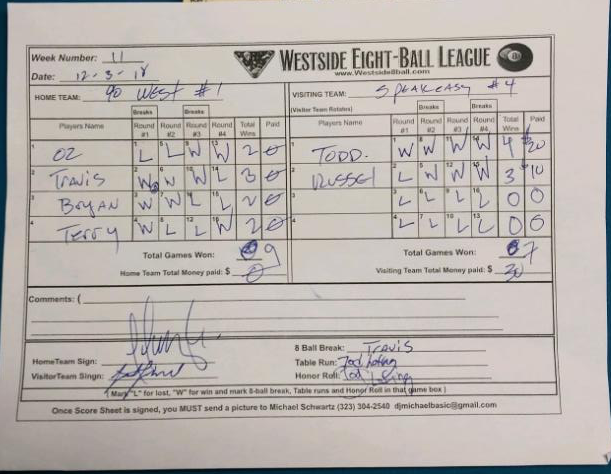 Week Number: 11
WESTSIDE EIGHT-BALL LEAGUE
www.Westside8ball.com
Date: 12-3-18
HOME TEAM: 90 WEST #1
VISITING TEAM: SPEAKEASY #4
(Visitor Team Rotates)
Breaks Breaks Breaks Breaks
Players Name Round #1 Round #2 Round #3 Round #4 Total Wins Paid Players Name Round #1 Round #2 Round #3 Round #4 Total Wins Paid
1 OZ L L W W 2 0 1 TODD. W W W W 4 $20
2 Travis W W W L 3 0 2 RUSSEL L W W W 3 $10
3 BRYAN W W L L 2 0 3 L L L L 0 0
4 Terry W L L W 2 0 4 L L L L 0 0
Total Games Won: 9 Total Games Won: 7
Home Team Total Money paid: $ 0 Visiting Team Total Money paid: $ 30
Comments: (
8 Ball Break: TRAVIS
HomeTeam Sign: Table Run:
VisitorTeam Singn: Honor Roll:
( Mark "L" for lost, "W" for win and mark 8-ball break, Table runs and Honor Roll in that game box )
Once Score Sheet is signed, you MUST send a picture to Michael Schwartz (323) 304-2540 djmichaelbasic@gmail.com